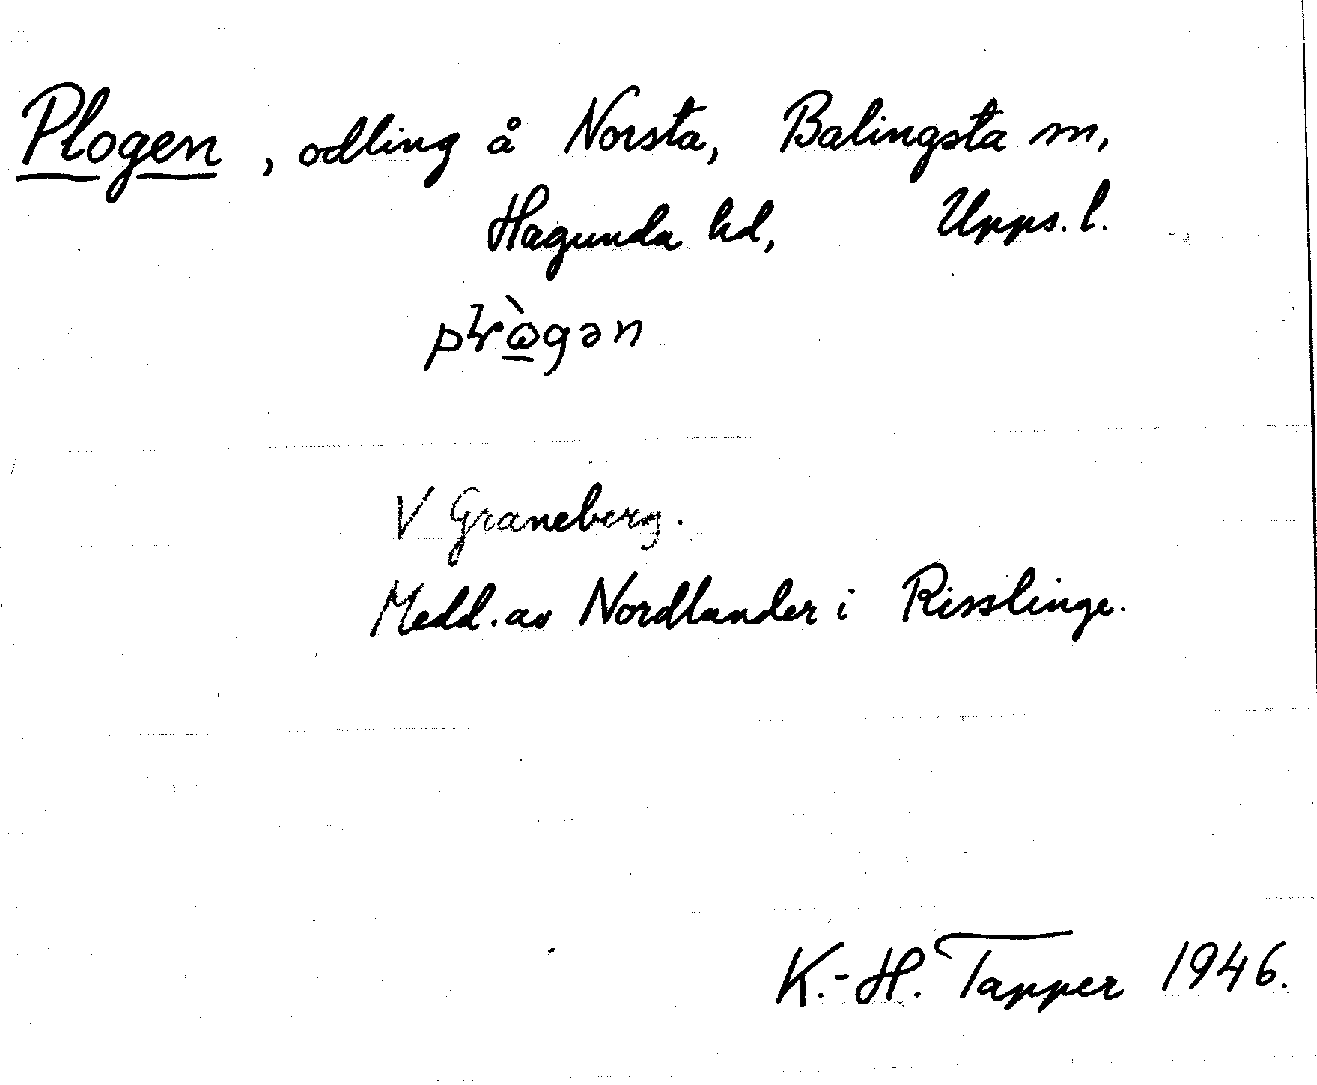 Plogen, odling å Norsta, Balingsta sn,
Hagunda hd, Upps. l.
V Graneberg.
Medd. av Nordlander i Risslinge.
K.-H. Tapper 1946.